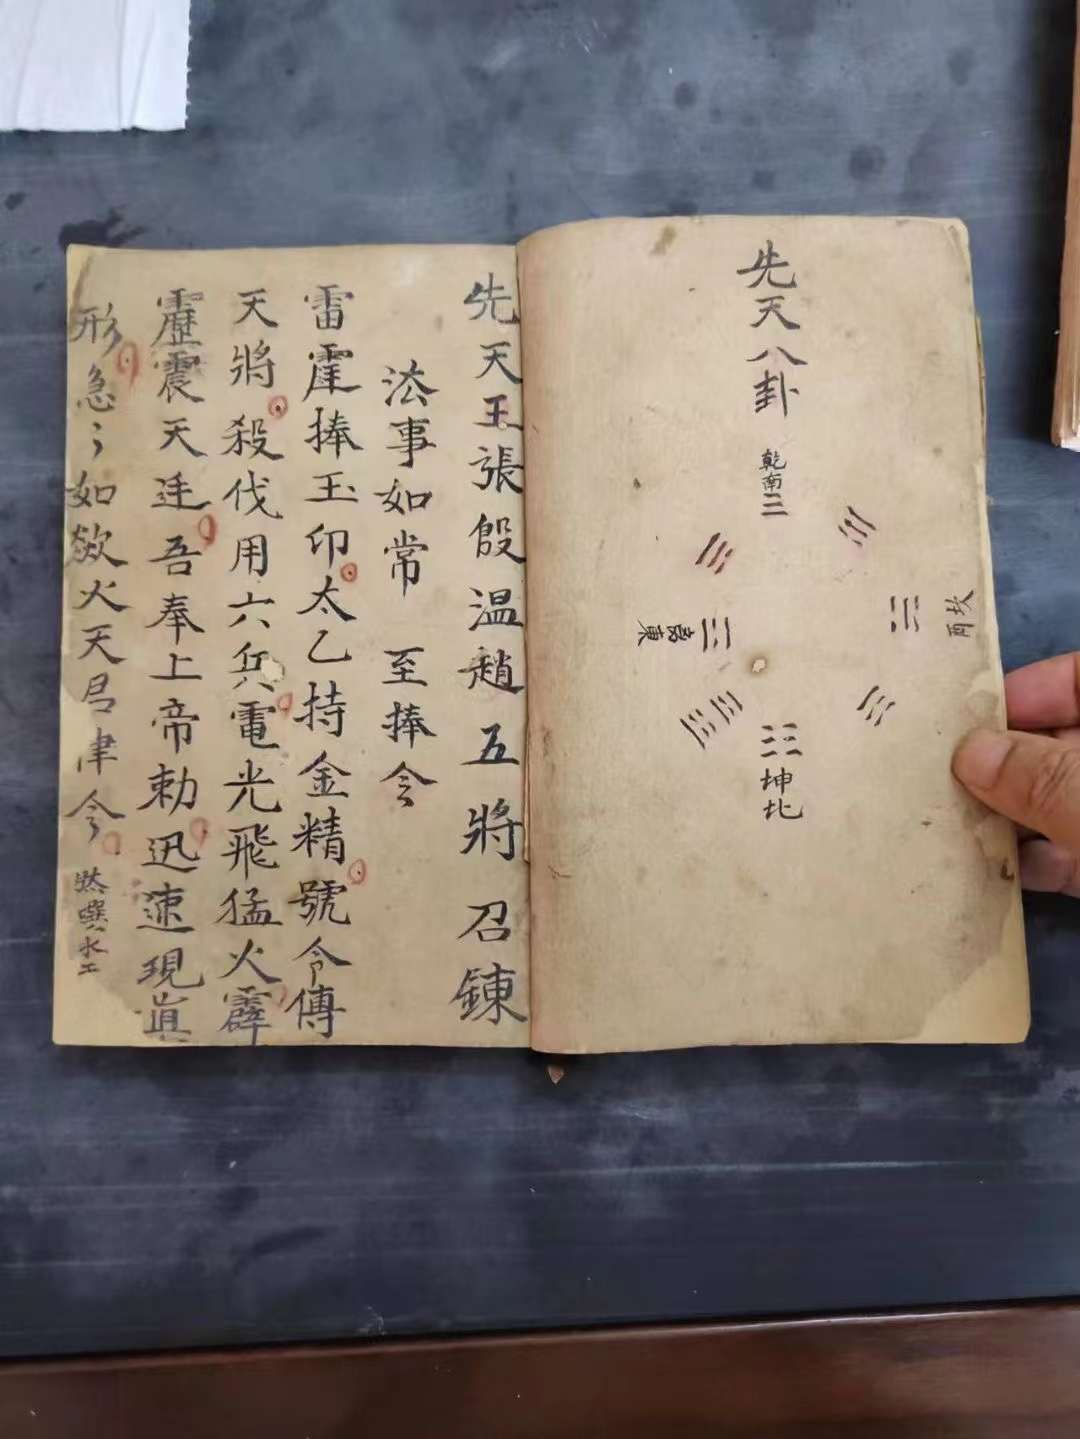 先天八卦
乾南
坎西
离東
坤北
先天王張殷温趙五將召鍊
法事如常 至捧令
雷霆捧玉印太乙持金精號令傳
天將殺伐用六兵電光飛猛火霹
靂震天迋吾奉上帝勅迅速現真
形急〻如欻火天君律令
噀水